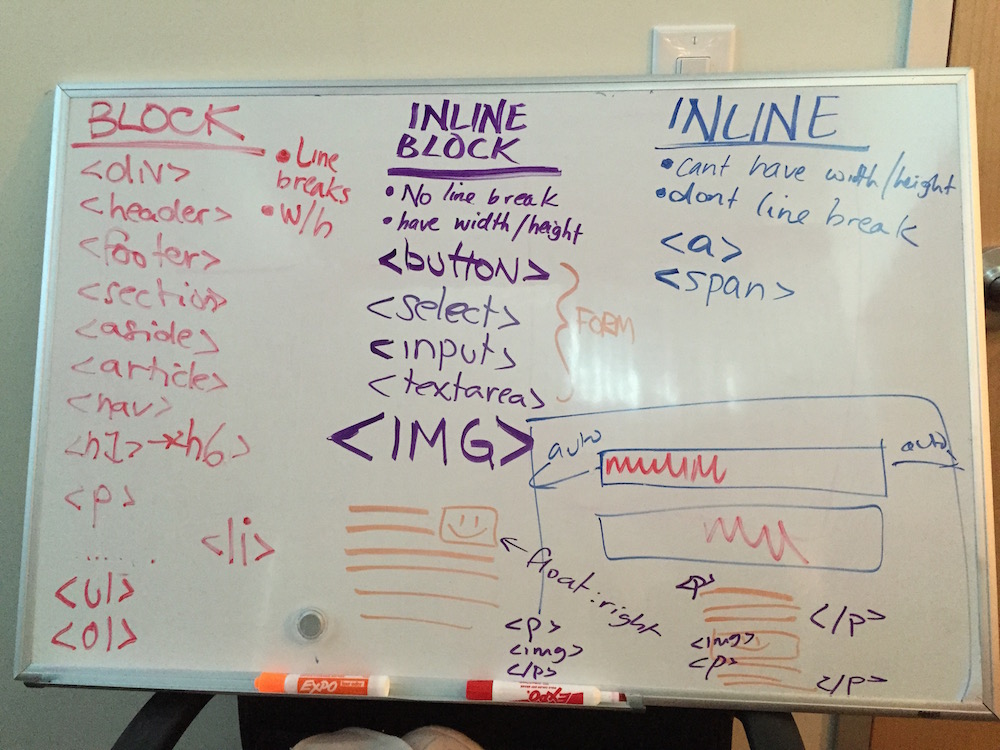 BLOCK
<div>
<header>
<footer>
<section>
<aside>
<article>
<nav>
<h1>→h6>
<p>
......
<li>
<ul>
<ol>
• Line
breaks
• W/h
INLINE
BLOCK
• No line break
• have width/height
<button>
<select>
<input>
<textarea>
FORM
<IMG>
INLINE
• cant have width/height
• dont line break
<a>
<span>
auto
auto
float:right
<p>
<img>
</p>
</p>
<img>
<p>
</p>
EXPO
EXPO